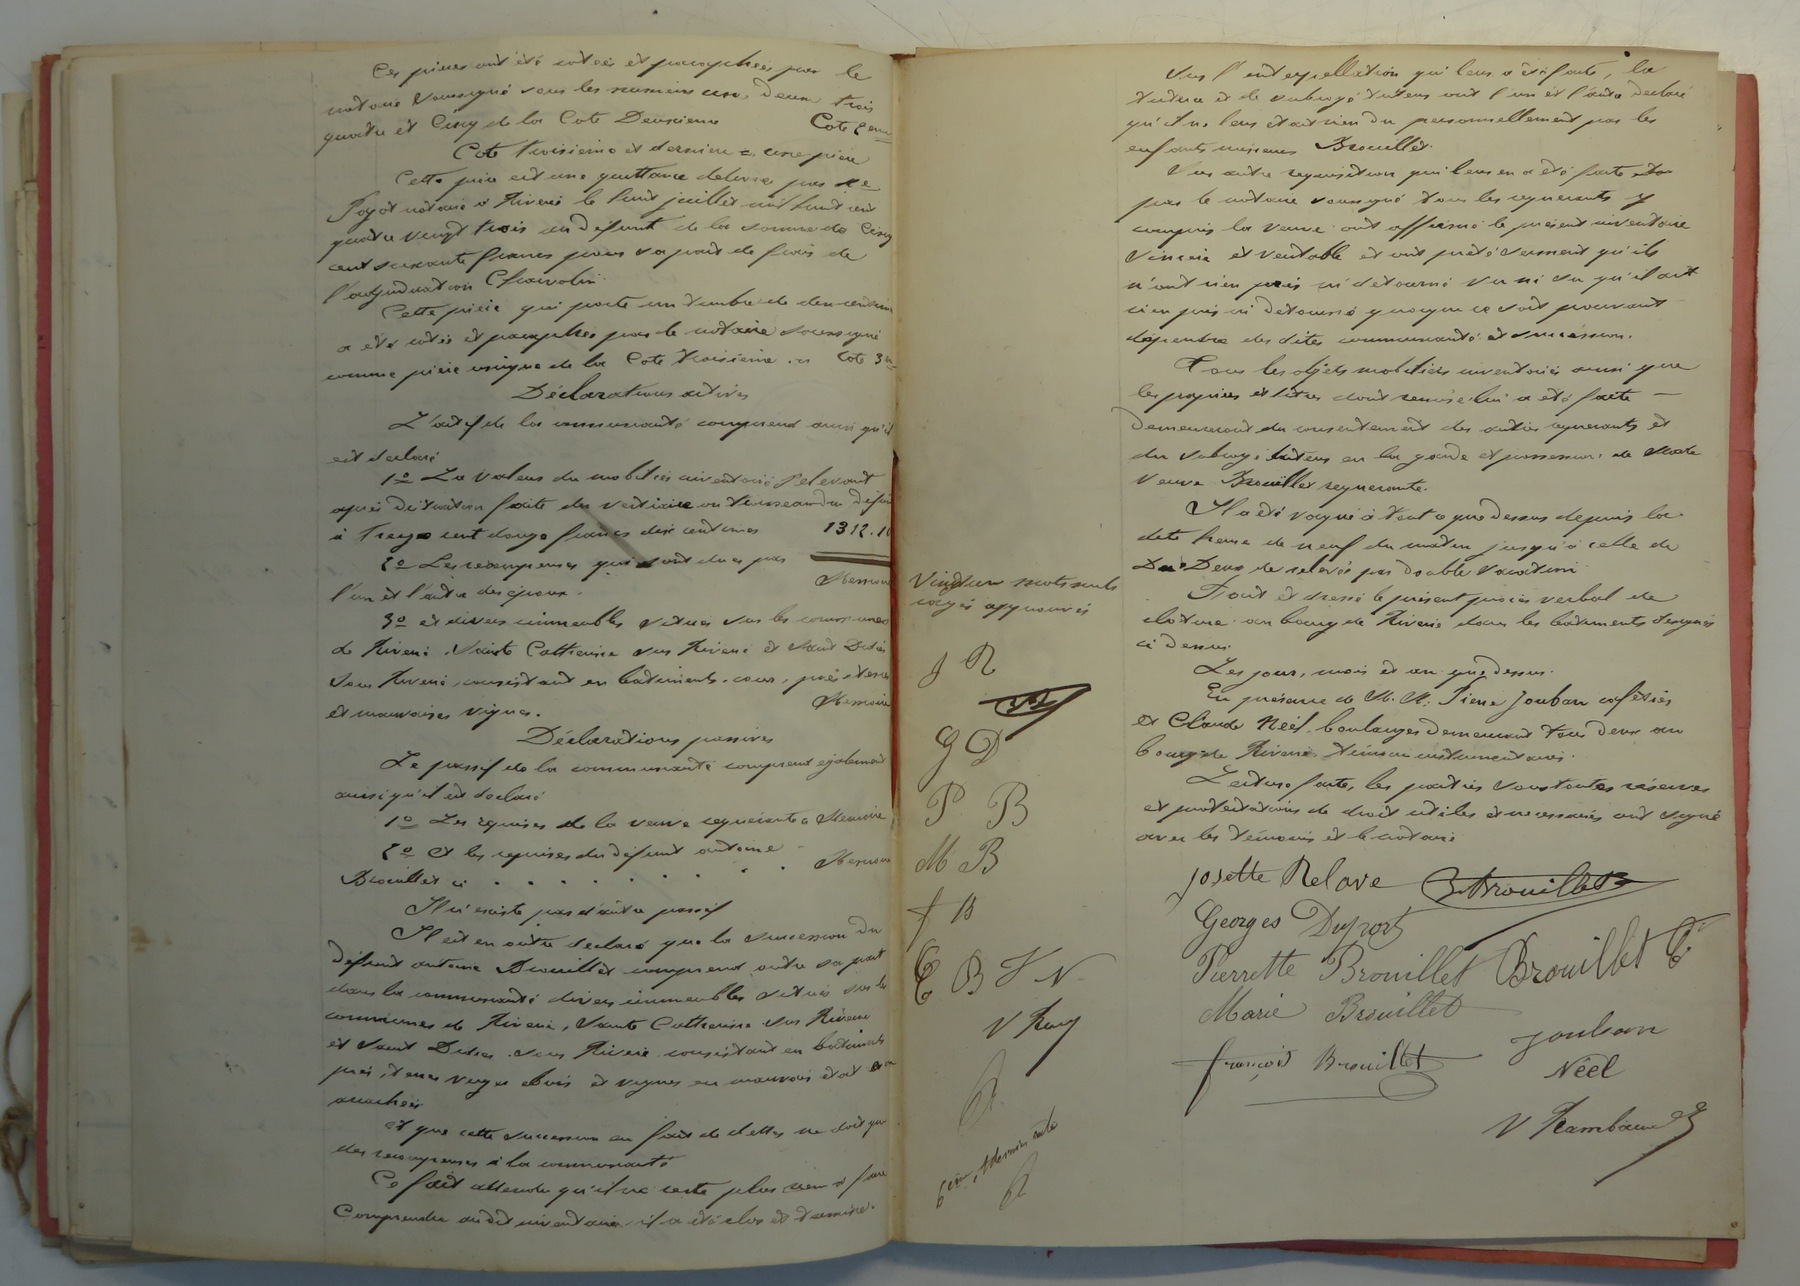 Ces pièces ont été cotées et paraphées par le
notaire soussigné sous les numéros un, deux trois
quatre et Cinq de la Cote Deuxième Cote 2eme
Cote troisième et dernière = une pièce
Cette pièce est une quittance délivrée par Me
notaire à Riverie le huit juillet mil huit cent
quatre vingt trois au défunt de la somme de Cinq
cent soixante francs pour sa part de frais de
l'adjudication
Cette pièce qui porte un timbre de dix centimes
a été cotée et paraphée par le notaire soussigné
comme pièce unique de la Cote troisième. Cote 3e
Déclarations actives
L'actif de la communauté comprend ainsi qu'il
est déclaré
1o La valeur du mobilier inventorié s'élevant
après distraction faite du vestiaire ou trousseau du défunt
à Treize cent douze francs dix centimes 1312.10
2o Les récompenses qui sont dues par
l'un et l'autre des époux. Mémoire
3o et divers immeubles situés sur les communes
de Riverie, Sainte Catherine sur Riverie et Saint Didier
sous Riverie, consistant en bâtiments, cour, prés, terres
et mauvaises vignes. Mémoire
Déclarations passives
Le passif de la communauté comprend également
ainsi qu'il est déclaré
1o Les reprises de la veuve requérante Mémoire
2o et les reprises du défunt antoine
Brouillet ci . . . . . . . . Mémoire
Il n'existe pas d'autre passif
Il est en outre déclaré que la succession du
défunt antoine Brouillet comprend outre sa part
dans la communauté divers immeubles situés sur les
communes de Riverie, Sainte Catherine sur Riverie
et Saint Didier sous Riverie consistant en bâtiments
prés, terres verger bois et vignes en mauvais état
arrachées
et que cette succession en fait de dettes ne doit que
des récompenses à la communauté
Ce fait attendu qu'il ne reste plus rien à faire
Comprendre audit inventaire il a été clos et terminé.
Sur l'interpellation qui leur a été faite, la
tutrice et le subrogé tuteur ont l'un et l'autre déclaré
qu'il ne leur était rien dû personnellement par les
enfants mineurs Brouillet.
Sur autre réquisition qui leur en a été faite
par le notaire soussigné tous les requérants y
compris la veuve ont affirmé le présent inventaire
sincère et véritable et ont prêté serment qu'ils
n'ont rien pris ni détourné vu ni su qu'il ait
rien pris ni détourné quoique ce soit pouvant
dépendre des dites communauté et succession.
Tous les objets mobiliers inventoriés ainsi que
les papiers et titres dont remise lui a été faite —
Demeureront du consentement des autres requérants et
du subrogé tuteur en la garde et possession de Made
Veuve Brouillet requérante.
Il a été vaqué à tout ce que dessus depuis la
dite heure de neuf du matin jusqu'à celle de
Deux de relevée par double vacation
Fait et dressé le présent procès verbal de
clôture au bourg de Riverie dans les bâtiments désignés
ci dessus.
Les jour, mois et an que dessus.
En présence de M.M. Pierre Jouban cafetier
et Claude Néel, boulanger demeurant tous deux au
bourg de Riverie témoins instrumentaires.
Lecture faite, les parties sous toutes réserves
et protestations de droit utiles et nécessaires ont signé
avec les témoins et le notaire
Vingt un mots nuls
rayés approuvés
J R
G D
P B
M B
f B
C B J N
V Ramb
Josette Relave Brouillet
Georges Duport
Pierrette Brouillet Brouillet C
Marie Brouillet
Jouban
françois Brouillet
Néel
V Rambaud